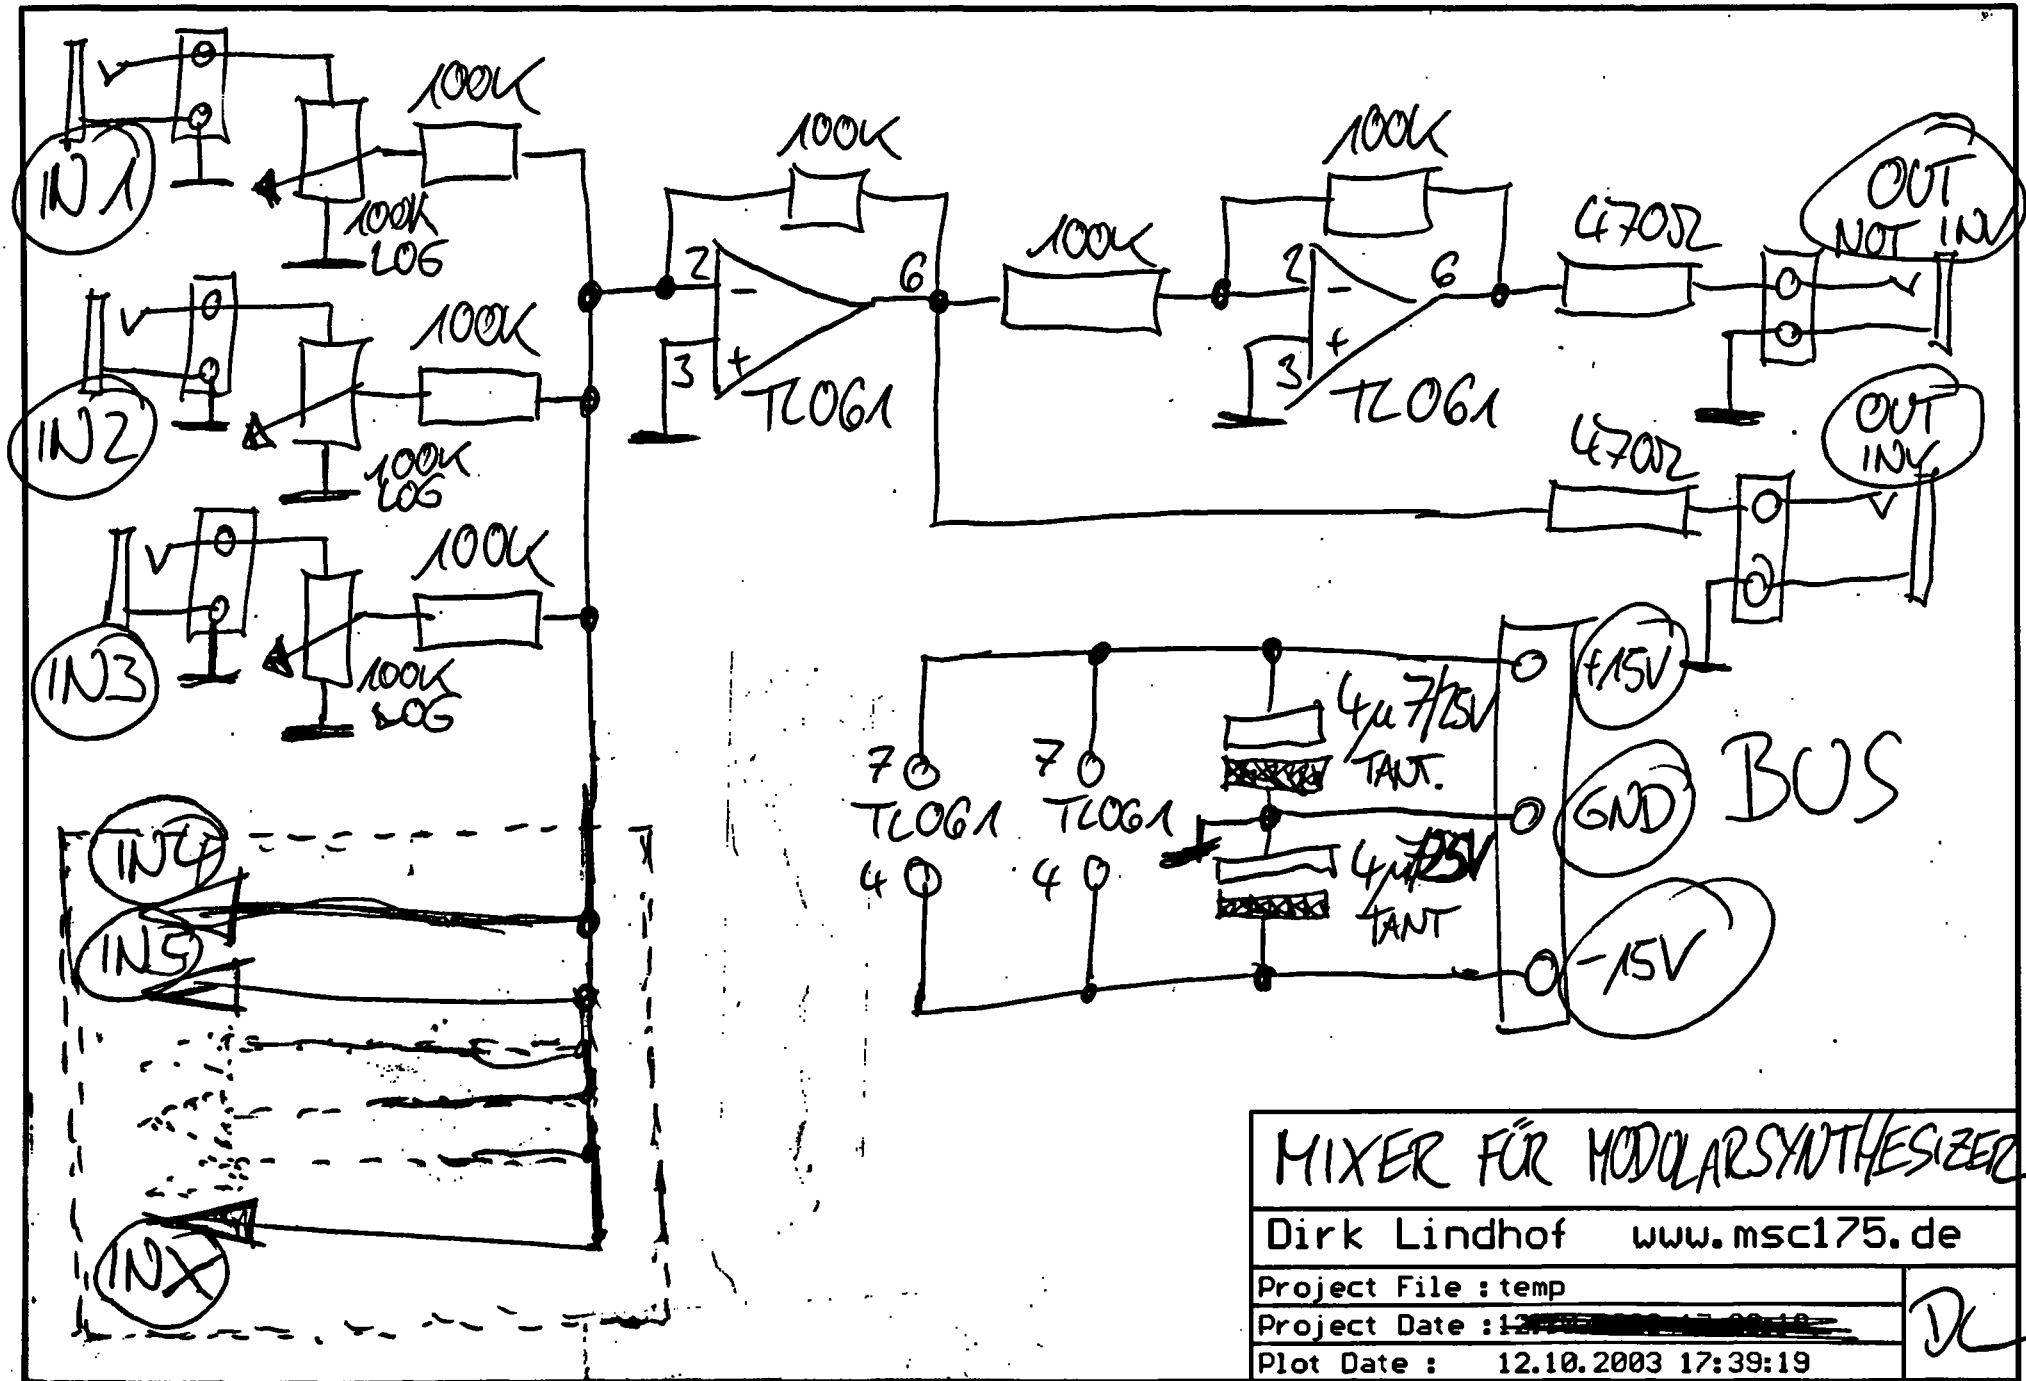 IN1
100K
100K
LOG
IN2
100K
100K
LOG
IN3
100K
100K
LOG
IN4
IN5
INX
100K
2
-
3
+
6
TL061
100K
100K
2
-
3
+
6
TL061
470Ω
OUT
NOT INV
470Ω
OUT
INV
7
TL061
4
7
TL061
4
4µ7/25V
TANT.
4µ7/25V
TANT
+15V
GND
-15V
BUS
MIXER FÜR MODULARSYNTHESIZER
Dirk Lindhof www.msc175.de
Project File : temp
Project Date :
Plot Date : 12.10.2003 17:39:19
DL